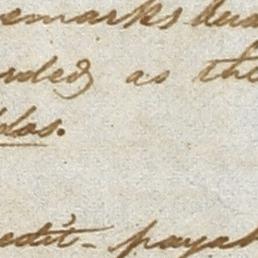 emarks dea
rded as the
blas.
edit- payab